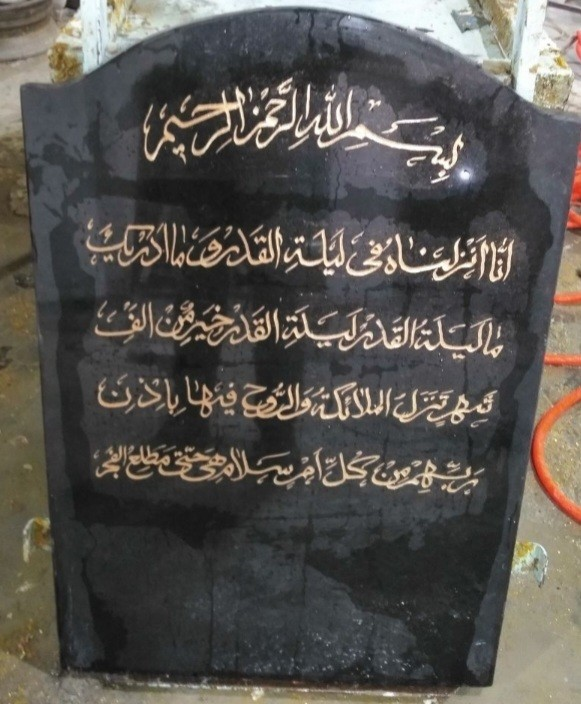 بِسْمِ اللهِ الرَّحْمٰنِ الرَّحِيمِ
اِنَّا اَنْزَلْنَاهُ فِی لَیْلَةِ الْقَدْرِ وَ مَا اَدْرٰیكَ
مَا لَیْلَةُ الْقَدْرِ لَیْلَةِ الْقَدْرِ خَیْرٌ مِّنْ اَلْفِ
شَهْرٍ تَنَزَّلُ الْمَلَائِكَةُ وَ الرُّوحُ فِیهَا بِاِذْنِ
رَبِّهِمْ مِنْ كُلِّ اَمْرٍ سَلَامٌ هِیَ حَتّٰی مَطْلَعِ الْفَجْرِ